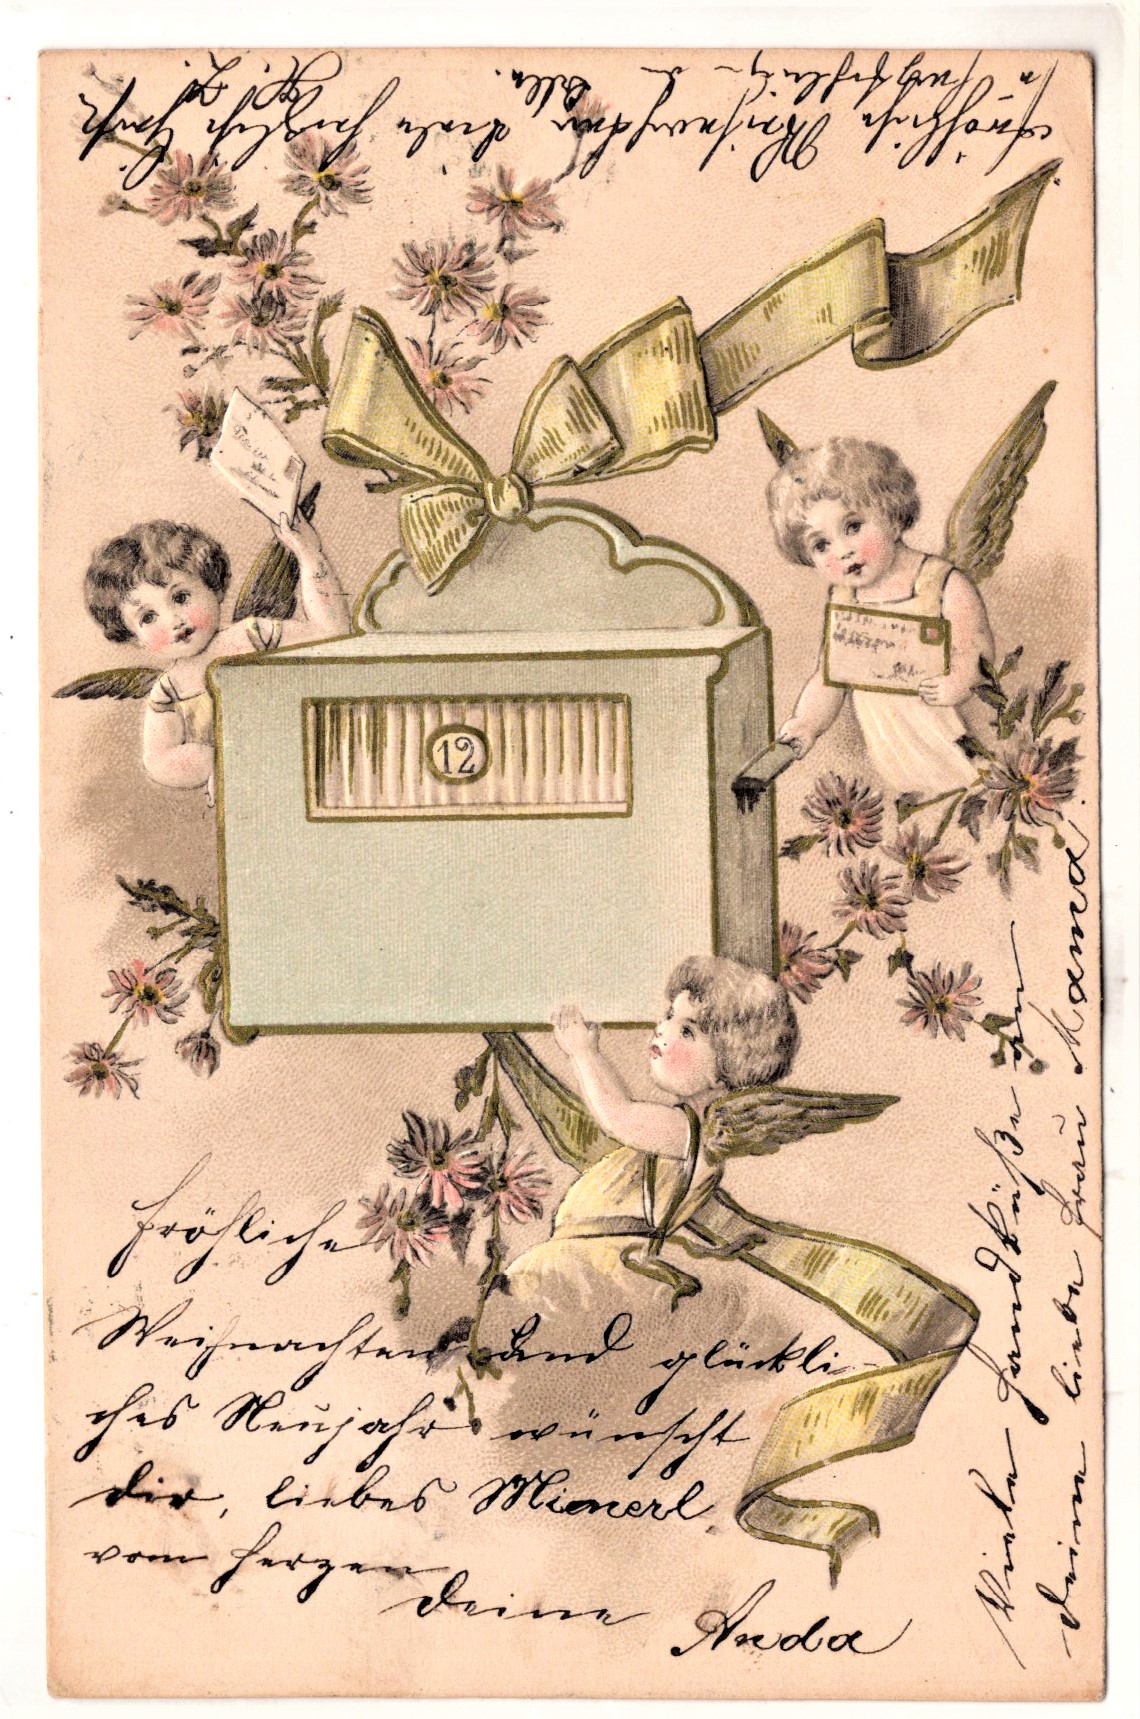 12
Fröhliche
Weihnachten und glückli-
ches Neujahr wünscht
dir, liebes Minerl
vom Herzen
Deine
Anda
Viele Handküße an
deine liebe Frau Mama!
Fröhliche Weihnachten viele herzliche